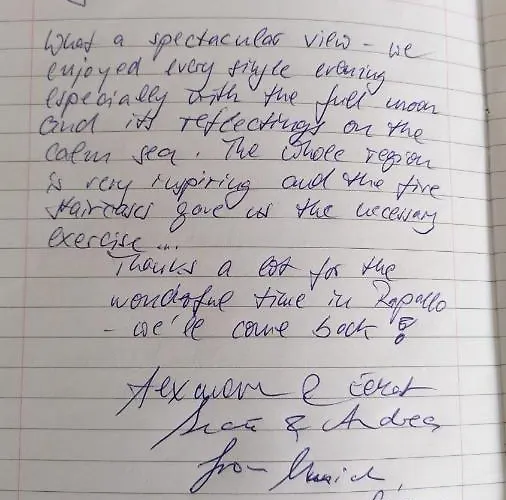 What a spectacular view - we
enjoyed every single evening
especially with the full moon
and its reflectings on the
calm sea. The whole region
is very inspiring and the five
staircases gave us the necessary
exercise ...
Thanks a lot for the
wonderful time in Rapallo
- we'll come back !
&
& Andrea
from Munich